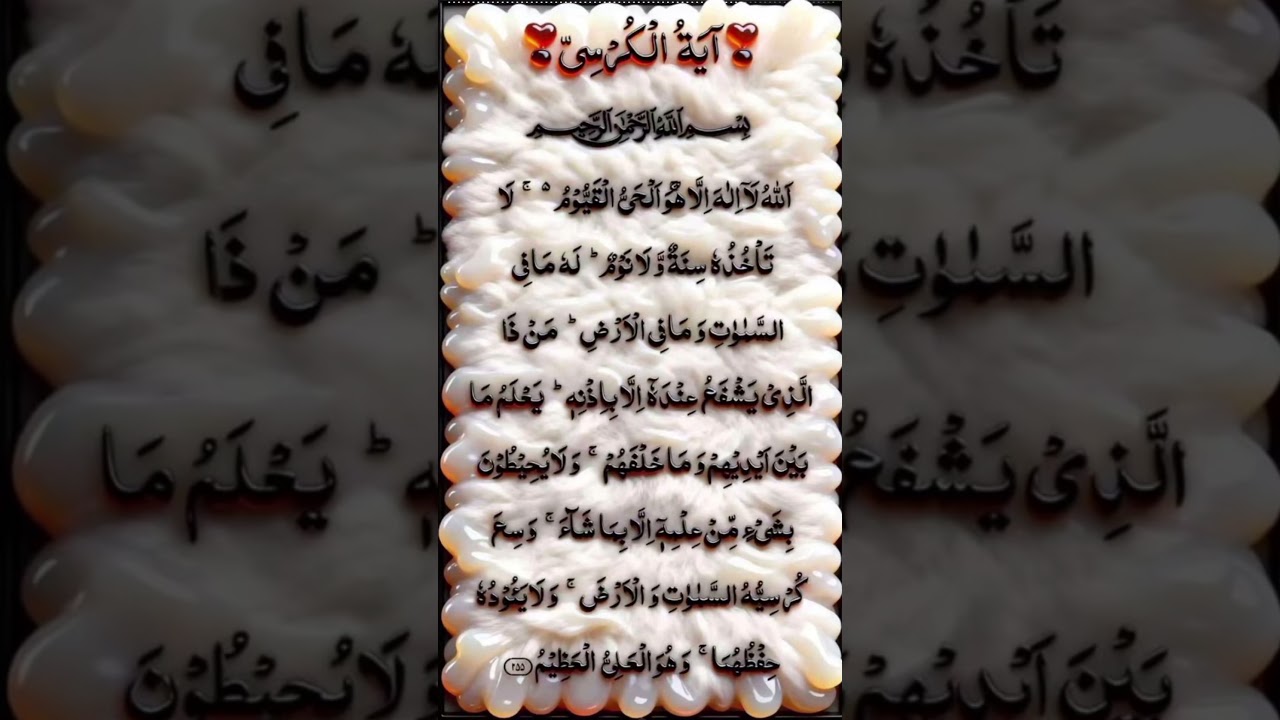 ❣آيَةُ الْكُرْسِيّ❣
بِسْمِ اللّٰهِ الرَّحْمٰنِ الرَّحِيْمِ
اَللّٰهُ لَاۤ اِلٰهَ اِلَّا هُوَ اَلْحَیُّ الْقَیُّوْمُ ۵ۚ لَا
تَاْخُذُهٗ سِنَةٌ وَّ لَا نَوْمٌ ؕ لَهٗ مَا فِی
السَّمٰوٰتِ وَ مَا فِی الْاَرْضِ ؕ مَنْ ذَا
الَّذِیْ یَشْفَعُ عِنْدَهٗۤ اِلَّا بِاِذْنِهٖ ؕ یَعْلَمُ مَا
بَیْنَ اَیْدِیْهِمْ وَ مَا خَلْفَهُمْ ۚ وَ لَا یُحِیْطُوْنَ
بِشَیْءٍ مِّنْ عِلْمِهٖۤ اِلَّا بِمَا شَآءَ ۚ وَسِعَ
كُرْسِیُّهُ السَّمٰوٰتِ وَ الْاَرْضَ ۚ وَ لَا یَـُٔوْدُهٗ
حِفْظُهُمَا ۚ وَ هُوَ الْعَلِیُّ الْعَظِیْمُ ۲۵۵